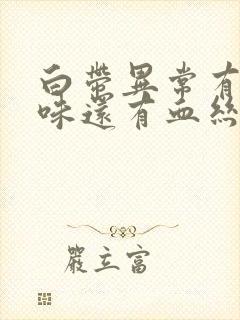 白帶異常有
味還有血絲
嚴立富